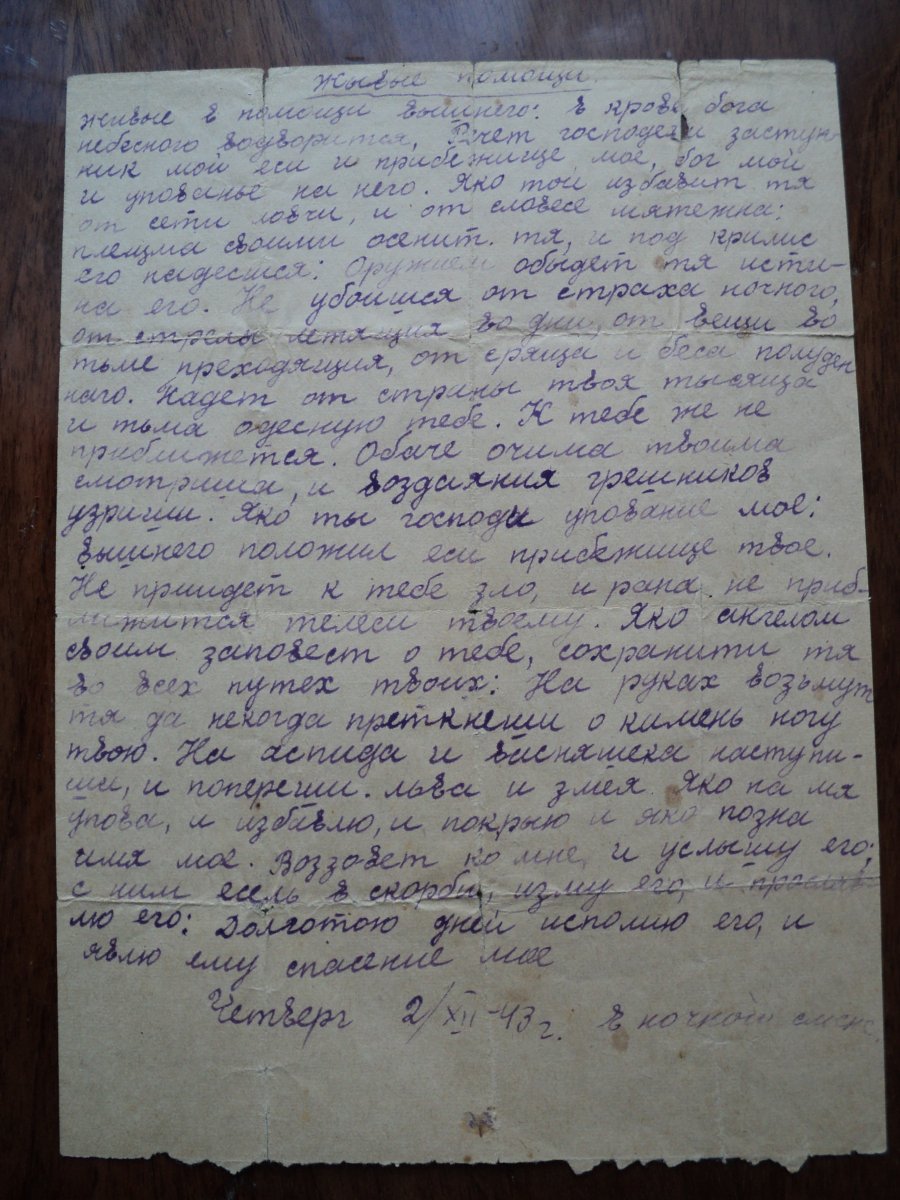 Жывые помощи.
живые в помощи вышнего: в крове бога
небесного водворится, Речет господеви заступ-
ник мой еси и прибежище мое, бог мой
и упованье на него. Яко той избавит тя
от сети ловчи, и от словесе мятежна:
плещма своими осенит тя, и под крилис
его надеешся: Оружием обыдет тя исти-
на его. Не убоишся от страха ночного,
от стрелы летящия во дни, от вещи во
тьме преходящия, от сряща и беса полуден
наго. Падет от страны твоя тысяща
и тьма одесную тебе. К тебе же не
приближется. Обаче очима твоима
смотриша, и воздаяния грешников
узриши. Яко ты господи упование мое:
вышнего положил еси прибежище твое.
Не приидет к тебе зло, и рана не приб-
лижится телеси твоему. Яко ангелом
своим заповест о тебе, сохранити тя
во всех путех твоих: На руках возьмут
тя да некогда преткнеши о камень ногу
твою. На аспида и васпяшека наступи-
ши, и попереши льва и змея Яко на мя
упова, и избавлю, и покрыю и яко позна
имя мое. Воззовет ко мне, и услышу его;
с ним есль в скорби, изму его, и прослав-
лю его: Долготою дней исполню его, и
явлю ему спасение мое
Четверг 2/XII-43 г. в ночной смене